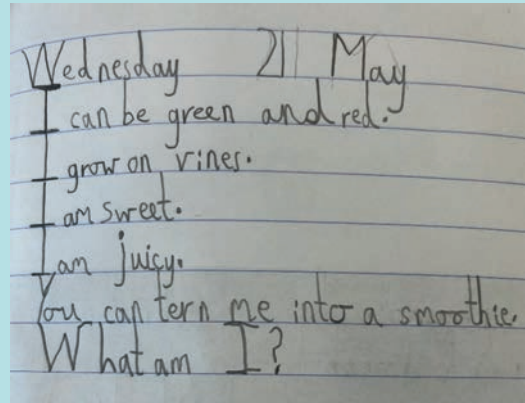 Wednesday 21 May
I can be green and red.
I grow on vines.
I am sweet.
I am juicy.
You can tern me into a smoothie.
What am I?